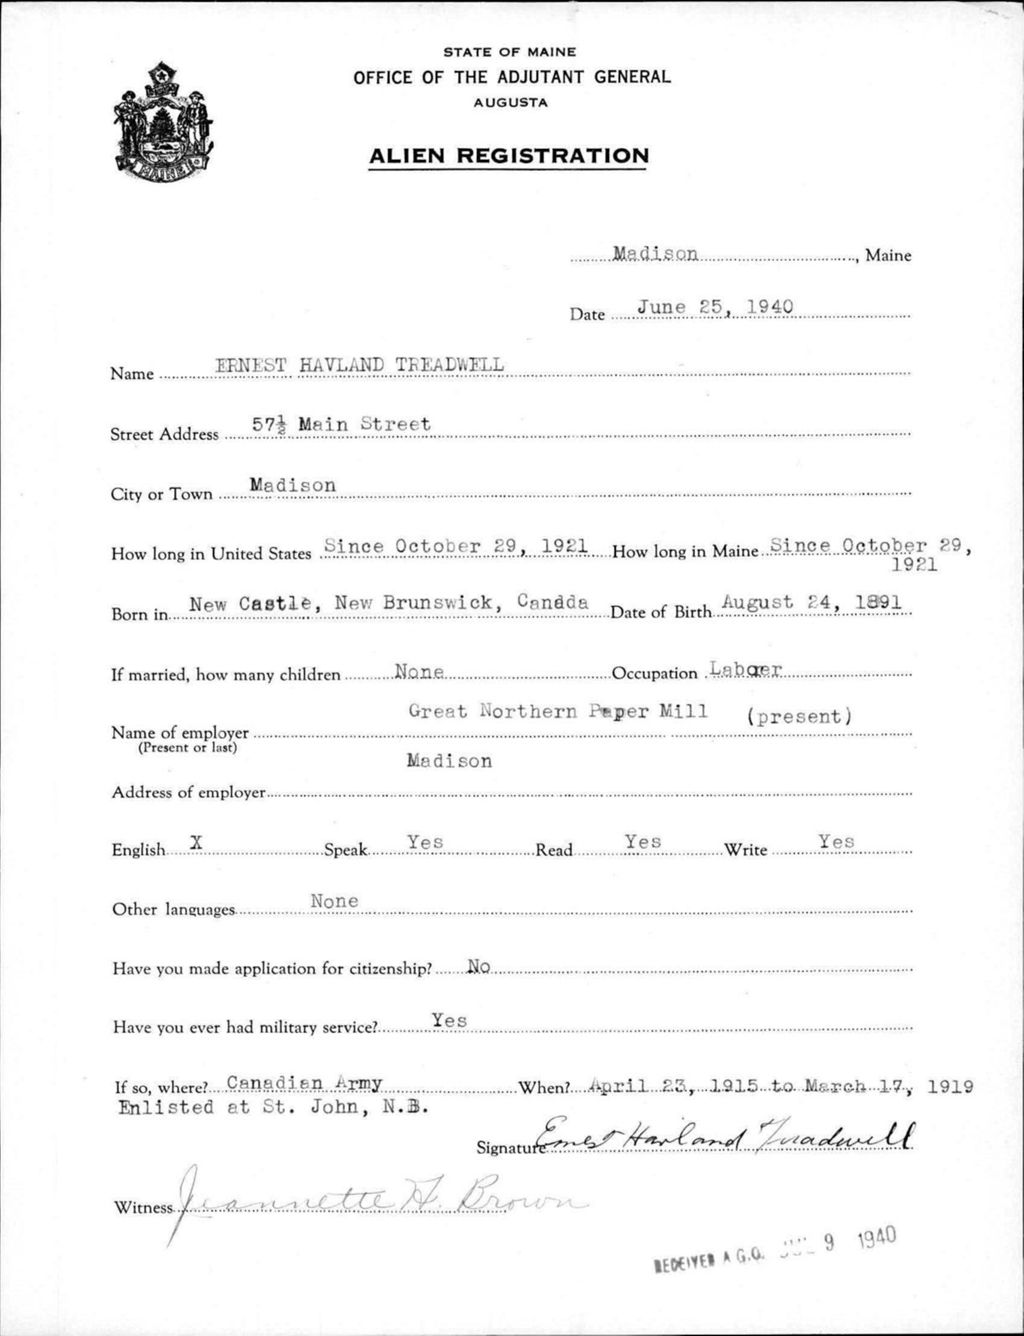 STATE OF MAINE
OFFICE OF THE ADJUTANT GENERAL
AUGUSTA
ALIEN REGISTRATION
MAINE
Madison, Maine
Date June 25, 1940
Name ERNEST HAVLAND TREADWELL
Street Address 57½ Main Street
City or Town Madison
How long in United States Since October 29, 1921 How long in Maine Since October 29,
1921
Born in New Castle, New Brunswick, Canada Date of Birth August 24, 1891
If married, how many children None Occupation Laborer
Great Northern Paper Mill (present)
Name of employer
(Present or last)
Madison
Address of employer
English X Speak Yes Read Yes Write Yes
Other languages None
Have you made application for citizenship? No
Have you ever had military service? Yes
If so, where? Canadian Army When? April 23, 1915 to March 17, 1919
Enlisted at St. John, N.B.
Signature Ernest Havland Treadwell
Witness Jeannette H. Brown
RECEIVED A.G.O. 9 1940